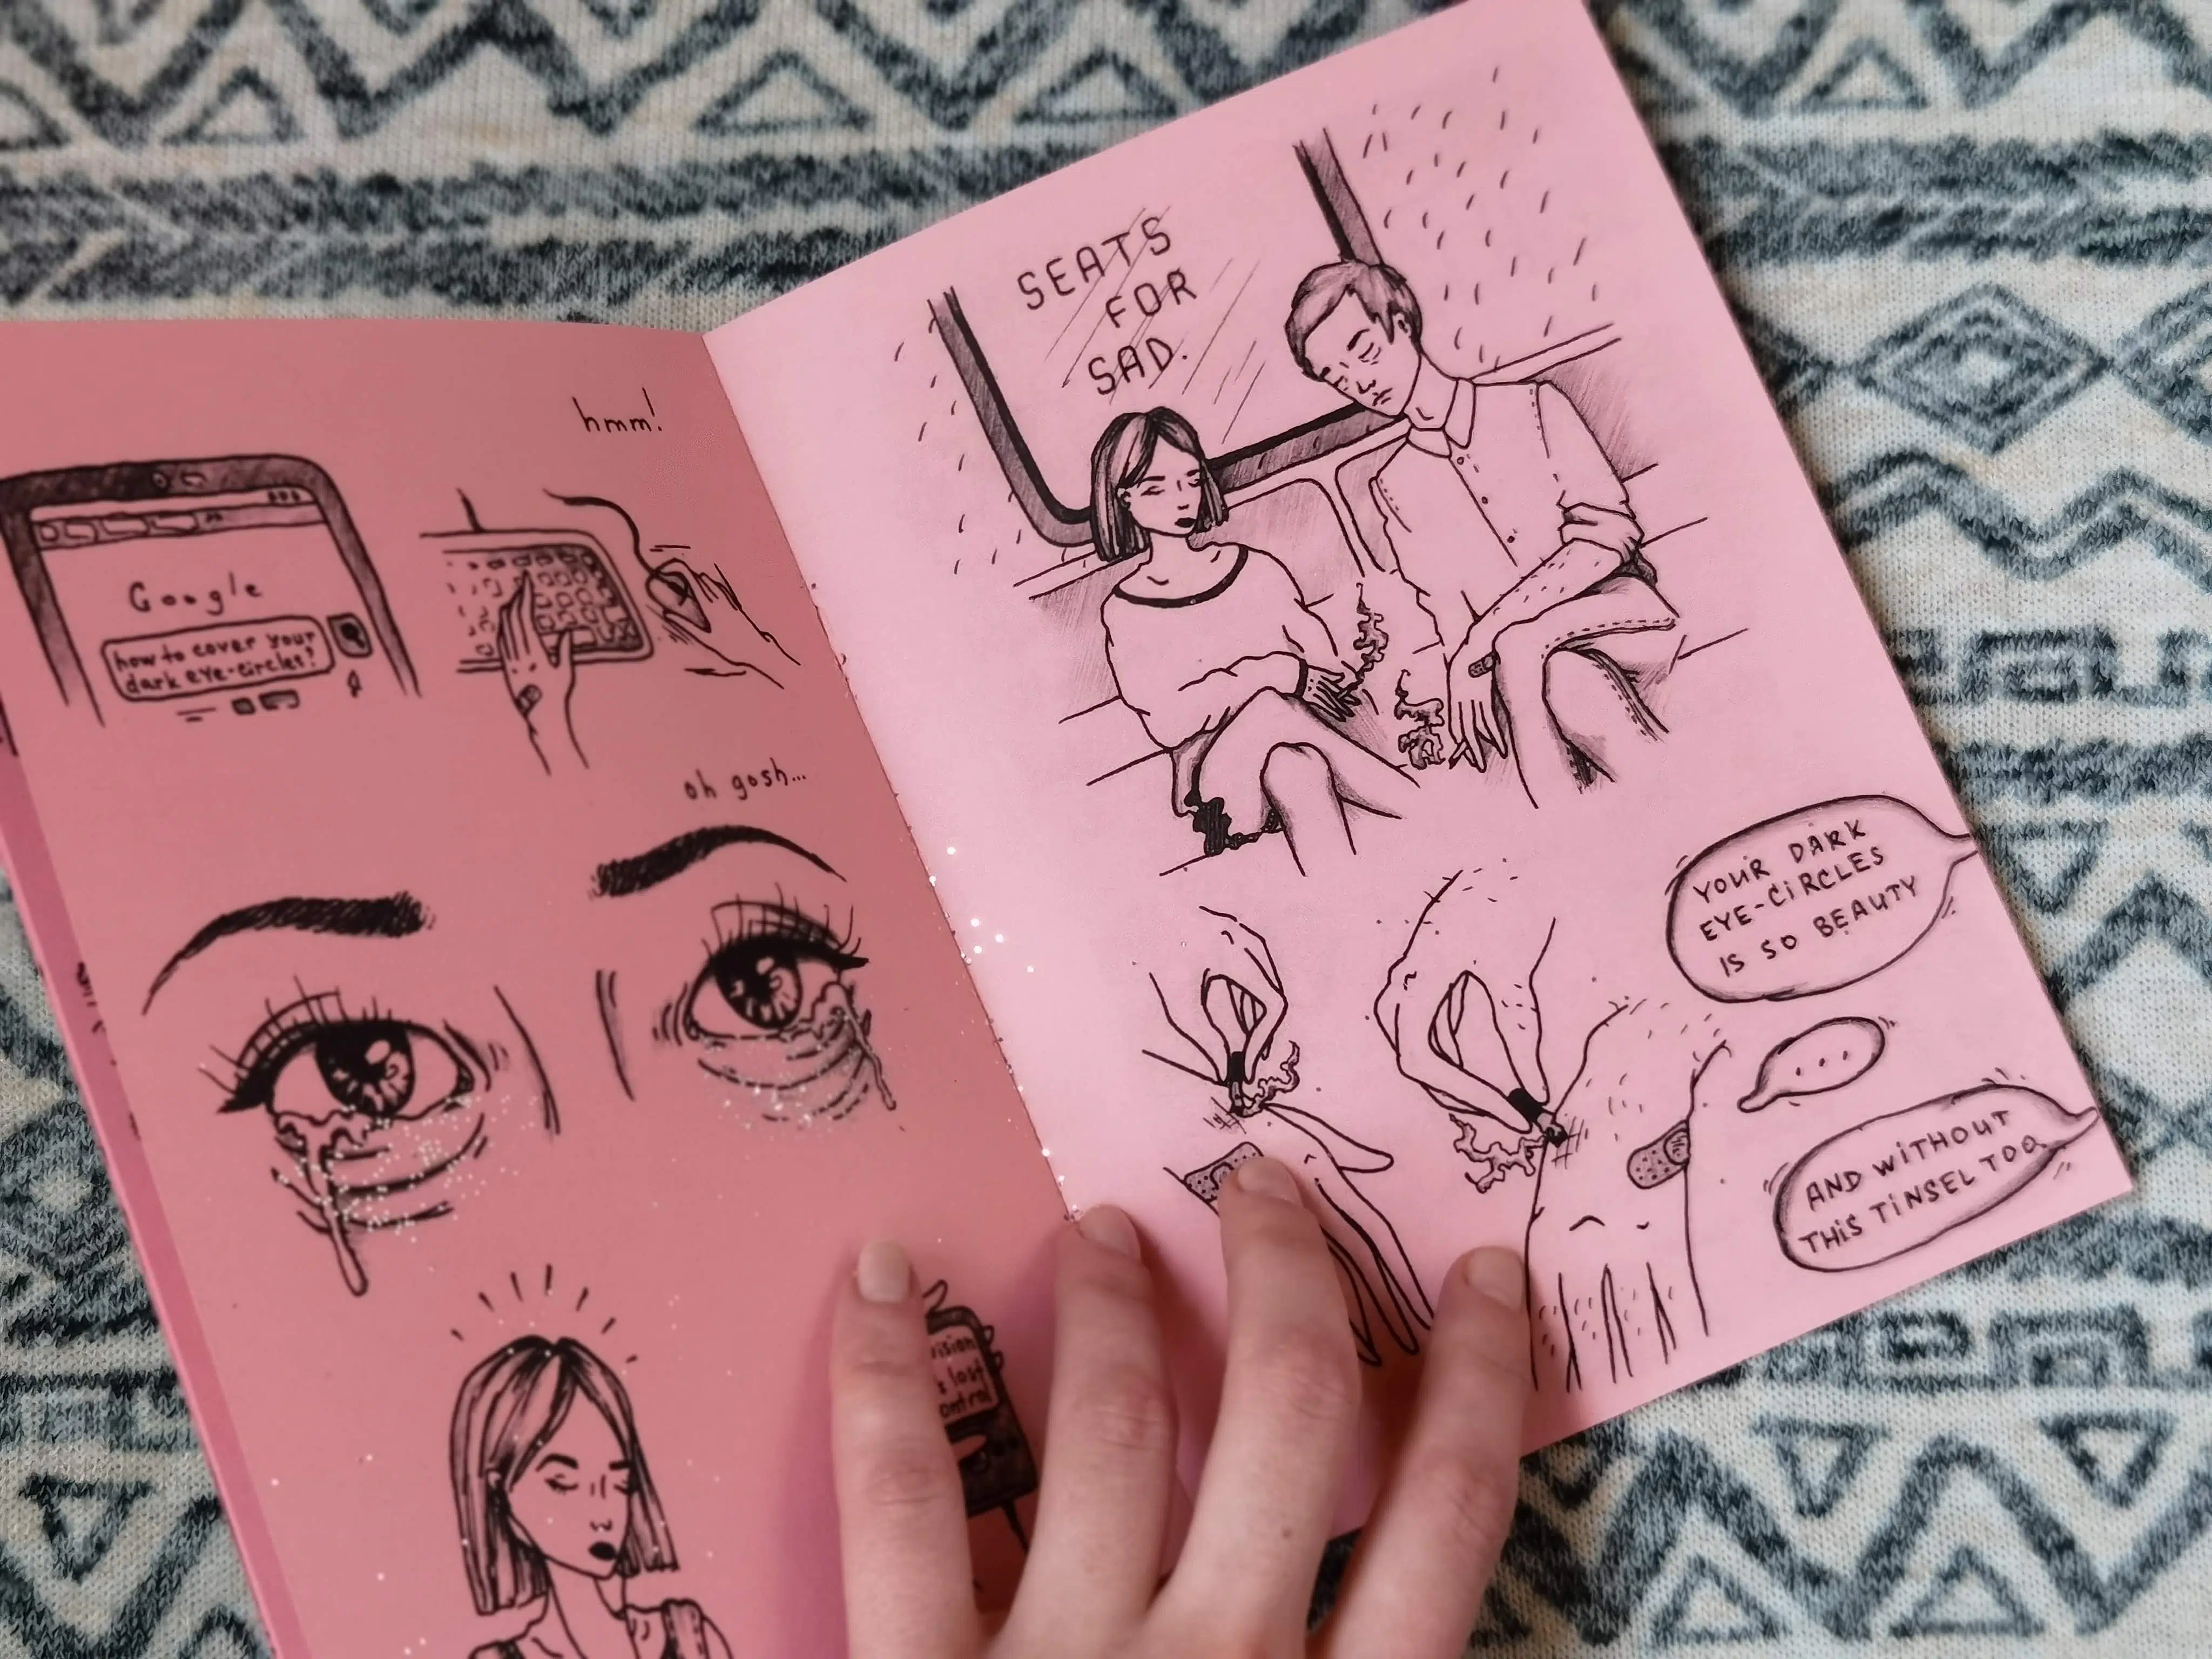 hmm!
Google
how to cover your
dark eye-circles?
oh gosh...
vision
lost
SEATS
FOR
SAD.
YOUR DARK
EYE-CIRCLES
IS SO BEAUTY
...
AND WITHOUT
THIS TINSEL TOO